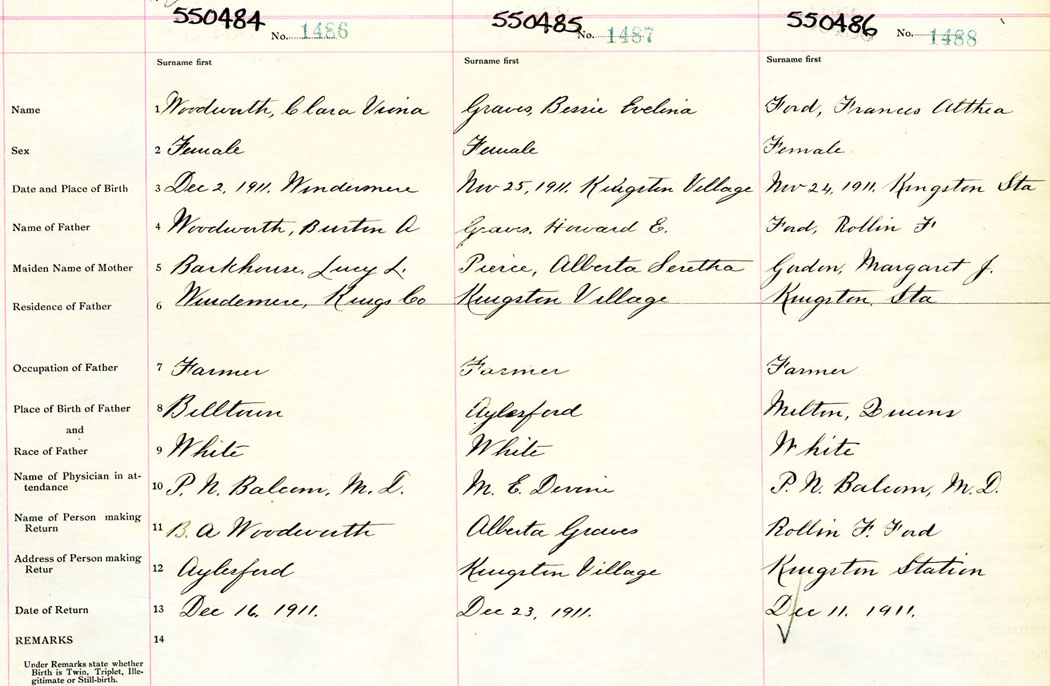 550484 No. 1486 550485 No. 1487 550486 No. 1488
Surname first Surname first Surname first
Name 1 Woodworth, Clara Graves, Bessie Evelina Ford, Frances Althea
Sex 2 Female Female Female
Date and Place of Birth 3 Dec 2, 1911. Windermere Nov 25, 1911. Kingston Village Nov 24, 1911. Kingston Sta
Name of Father 4 Woodworth, Burton A Graves, Howard E. Ford, Rollin F
Maiden Name of Mother 5 Barkhouse, Lucy L. Pierce, Alberta Seretha Gordon, Margaret J.
Residence of Father 6 Windemere, Kings Co Kingston Village Kingston, Sta
Occupation of Father 7 Farmer Farmer Farmer
Place of Birth of Father 8 Billtown Aylesford Milton, Queens
and
Race of Father 9 White White White
Name of Physician in at-
tendance 10 P. N. Balcom, M. D. M. E. Devine P. N. Balcom, M. D.
Name of Person making
Return 11 B. A Woodworth Alberta Graves Rollin F. Ford
Address of Person making
Retur 12 Aylesford Kingston Village Kingston Station
Date of Return 13 Dec 16, 1911. Dec 23, 1911. Dec 11. 1911.
REMARKS 14
Under Remarks state whether
Birth is Twin, Triplet, Ille-
gitimate or Still-birth.